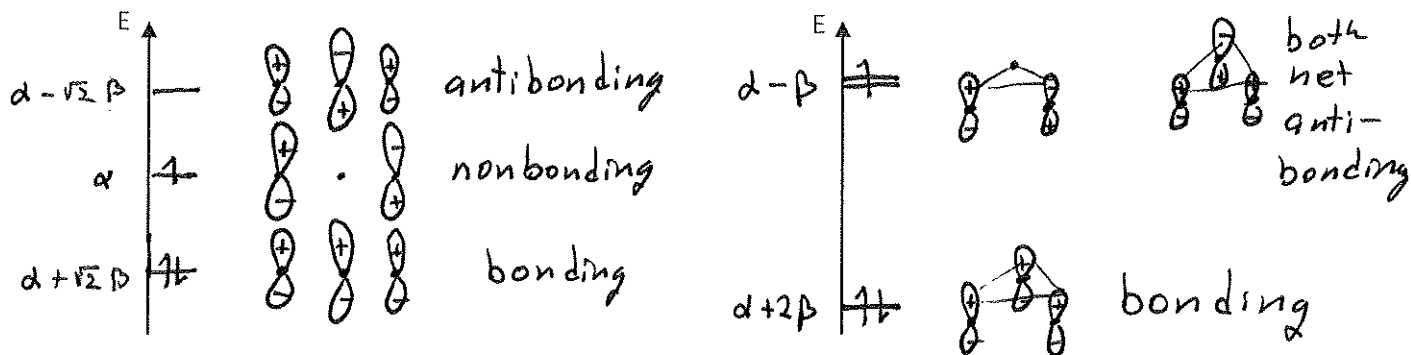 E
α-√2 β
+ - +
- + -
antibonding
α
+ -
- +
nonbonding
α+√2 β
+ + +
- - -
bonding
E
α-β
+ -
- +
-
+ + +
- -
both
net
anti-
bonding
α+2β
+
+ - +
- -
bonding